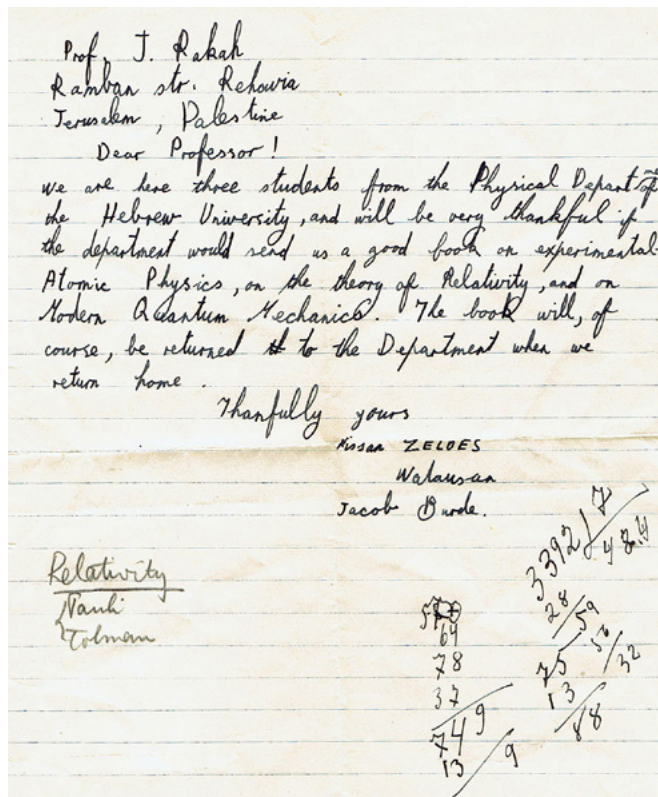 Prof. J. Rakah
Ramban str. Rehavia
Jerusalem, Palestine
Dear Professor!
We are here three students from the Physical Depart. of
the Hebrew University, and will be very thankful if
the department would send us a good book on experimental
Atomic Physics, on the theory of Relativity, and on
Modern Quantum Mechanics. The book will, of
course, be returned to the Department when we
return home.
Thanfully yours
Nissan ZELDES
Jacob Burde.
Relativity
Pauli
Tolman
64
78
37
74 9
13 9
3392 7
48.4
28
59
56
32
75
13
88